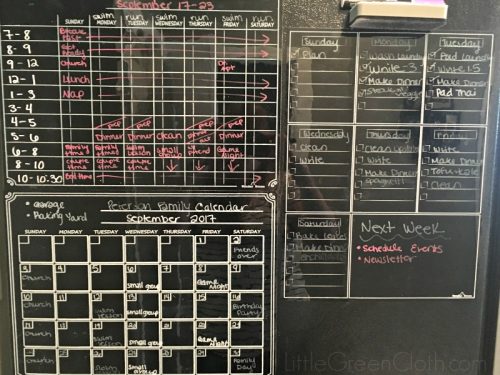 September 17-23
swim run swim run swim run
SUNDAY MONDAY TUESDAY WEDNESDAY THURSDAY FRIDAY SATURDAY
7-8
8-9 Get Ready
9-12 Church
12-1 Lunch
1-3 Nap
3-4
4-5 prep prep prep
5-6 Dinner Dinner Clean Dinner
6-8 family time family time small group Game Night
8-10 couple time couple time
10-10:30 Bed time
• garage
• Mowing Yard
Peterson Family Calendar
September 2017
SUNDAY MONDAY TUESDAY WEDNESDAY THURSDAY FRIDAY SATURDAY
1 2 Friends over
3 Church 4 5 6 small group 7 8 Game Night 9
10 Church 11 12 swim lesson 13 small group 14 15 16 Birthday Party
17 Church 18 19 swim lesson 20 small group 21 22 Game Night 23
24 Church 25 26 swim lesson 27 small group 28 29 30 Family Day
Sunday
Plan
Monday
Wash Laundry
Write - 3
Make Dinner
Steak & veggie
Tuesday
Fold Laundry
Write 1.5
Make Dinner
Pad Thai
Wednesday
Clean
Write
Thursday
Clean
Write
Make Dinner
Spaghetti
Friday
Write
Make Dinner
Clean
Saturday
Make Dinner
enchiladas
Next Week
• Schedule Events
• Newsletter
LittleGreenCloth.com